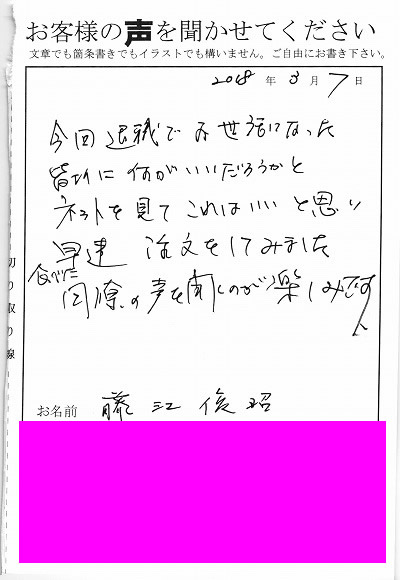 お客様の声を聞かせてください
文章でも箇条書きでもイラストでも構いません。ご自由にお書き下さい。
2018年3月7日
今回退職でお世話になった
皆様に何がいいだろうかと
ネットを見てこれはいいと思い
早速 注文をしてみました
食べた
同僚の声を聞くのが楽しみです
切り取り線
お名前 藤江俊昭